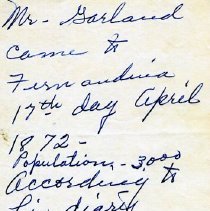 Mr. Garland
came to
Fernandina
17th day April
1872-
Population - 3000
According to
his diary